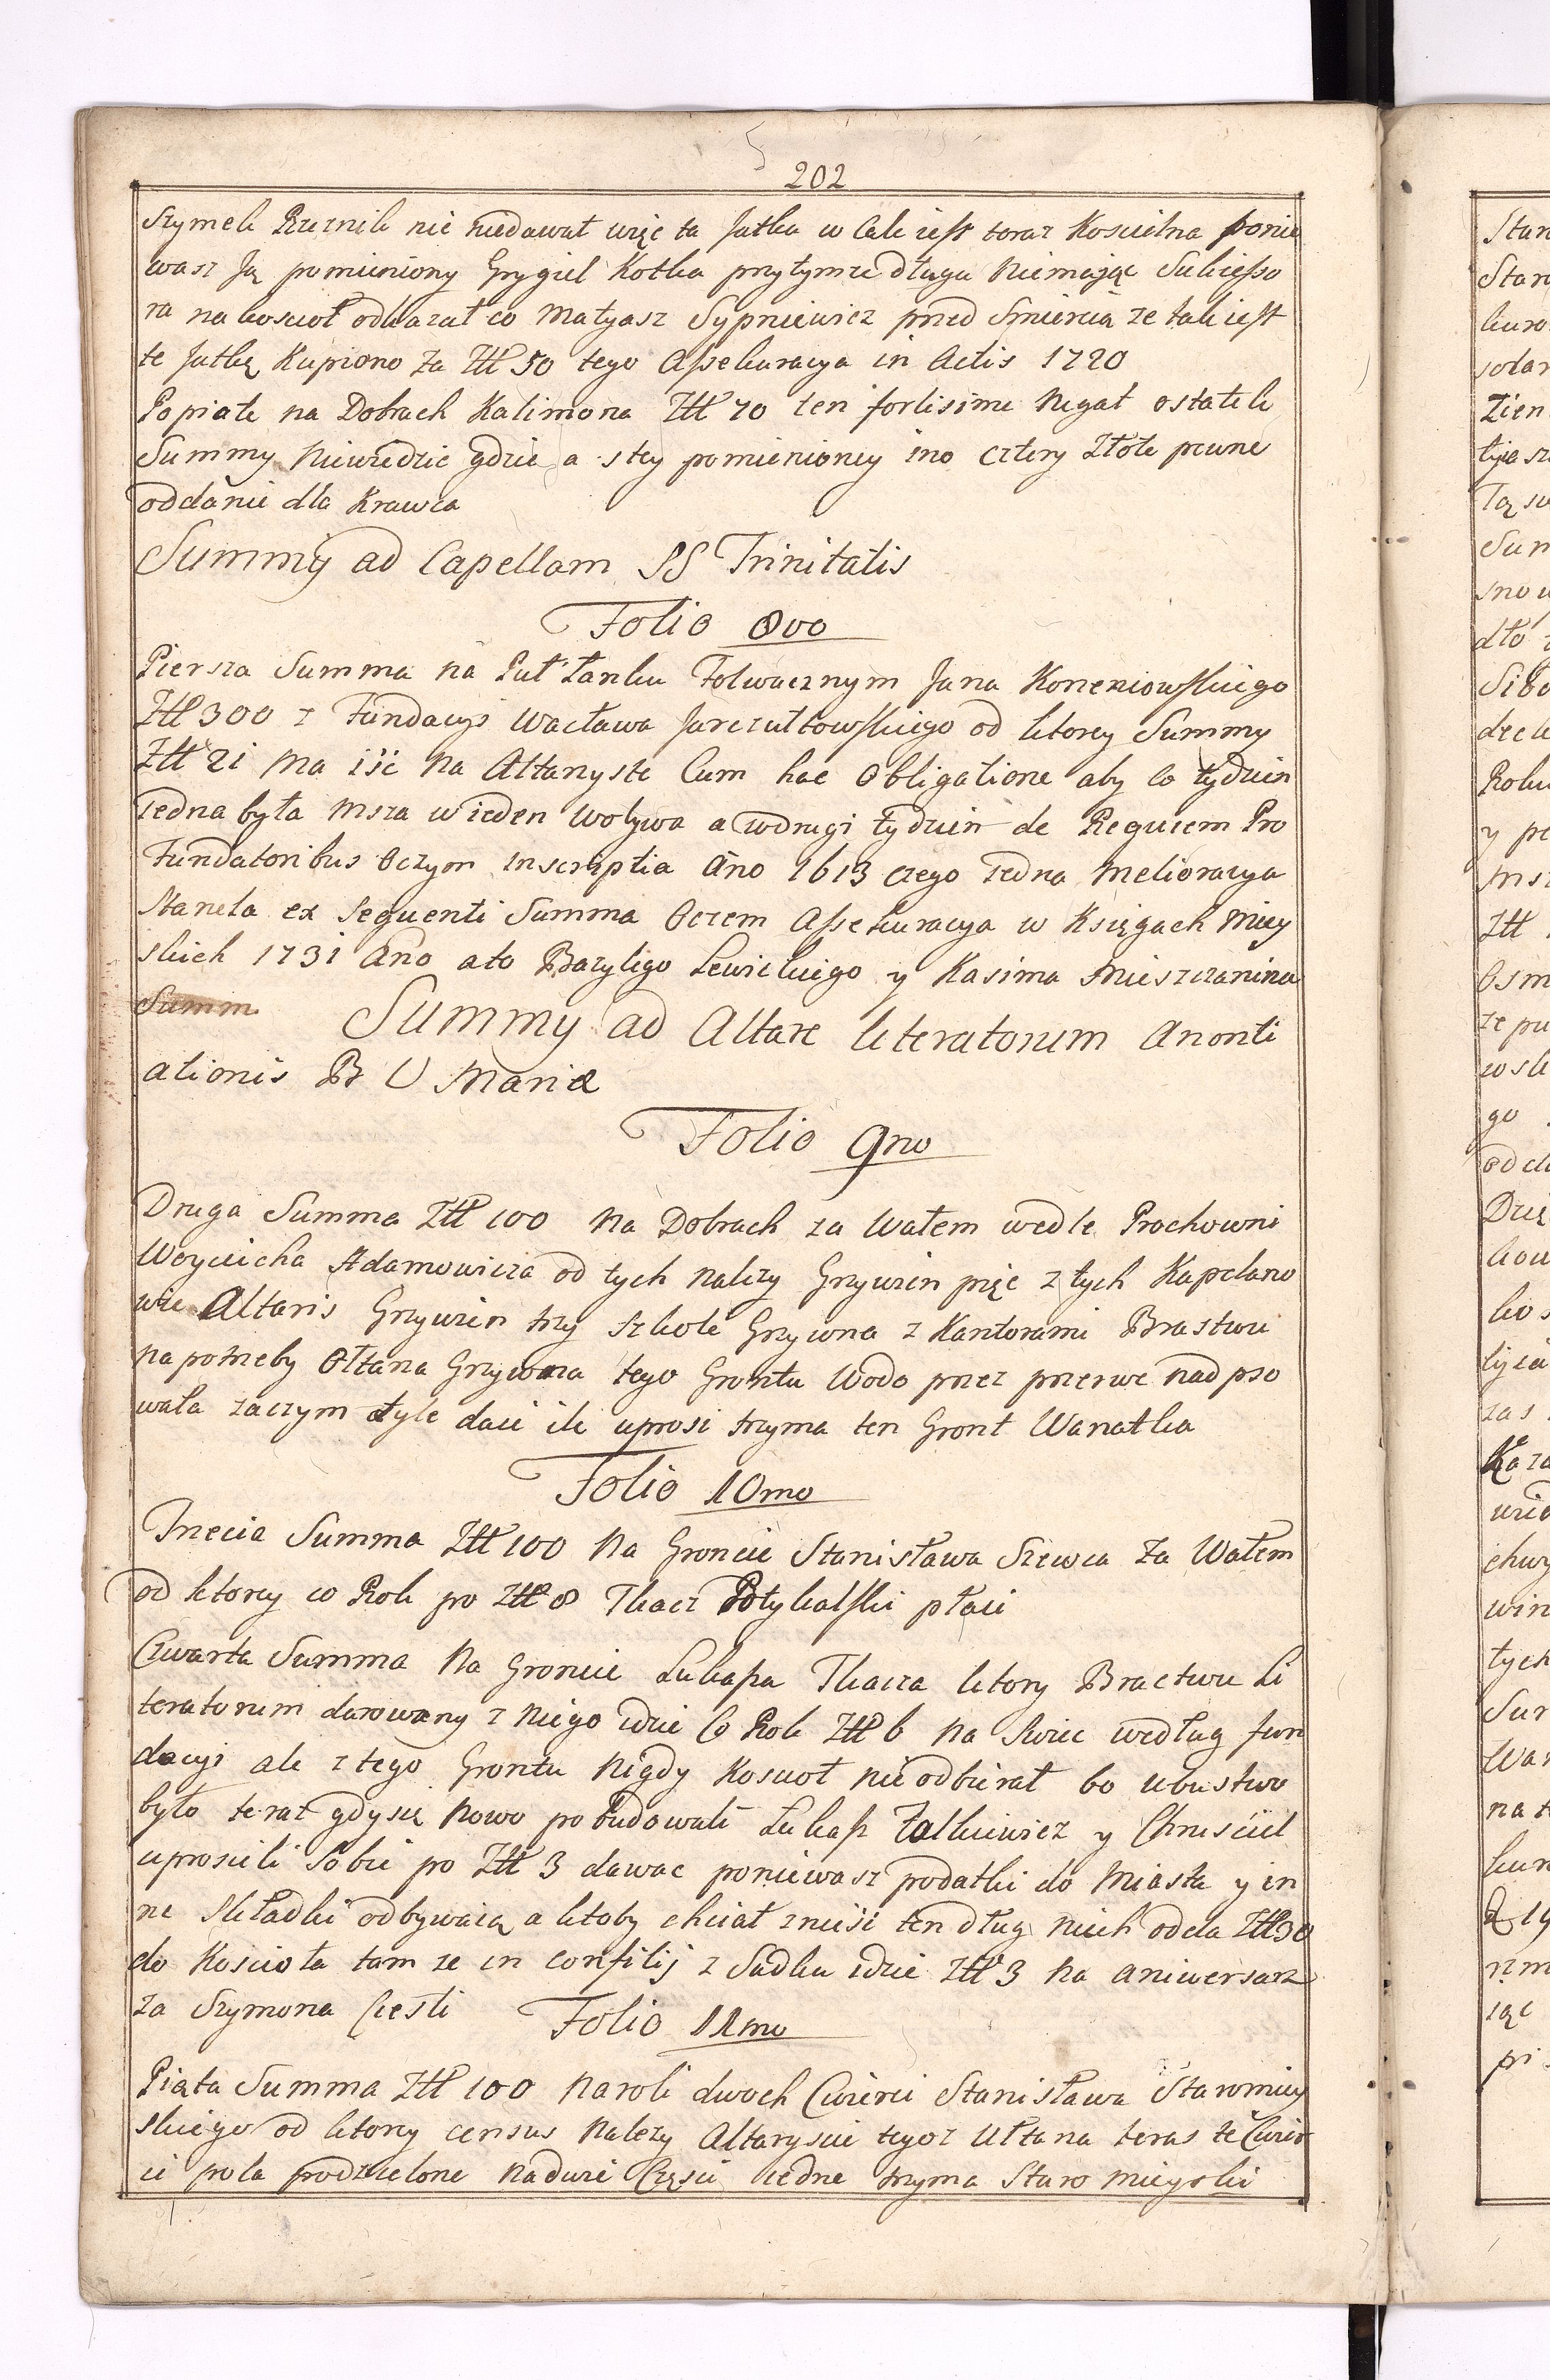 202
Szymek Rzeznik nic niedawał więc ta Jatka w Cale iest teraz Koscielna ponie
wasz Ją pomieniony Grygiel Kotka przytymze długu Niemaiąc Sukcesso
ra na koscioł odkazał co Matyasz Sypniewicz przed Smiercią ze tak iest
te Jatkę Kupiono za Złł 50 tego Assekuracya in Actis 1720
Popiąte na Dobrach Kalimona Złł 70 ten fortisime Negat ostatek
Summy Niewiedzie gdzie a s tey pomienioney ino cztery Złote pewne
oddanie dla Krawca
Summy ad Capellam SS Trinitatis
Folio 8vo
Piersza Summa na Puł Łanku Folwacznym Jana Koneniowskiego
Złł 300 z Fundacyi Wacława Jarczułtowskiego od ktorey Summy
Złł 21 ma iść na Altarystę Cum hac Obligatione aby co tydzien
iedna była Msza w ieden Wotywa a wdrugi tydzien de Requiem Pro
Fundatoribus Oczym Inscriptia Ano 1613 czego iedna Melioracya
Staneła ex Sequenti Summa Oczem Assekuracya w Księgach Miey
skich 1731 Ano ato Bazyligo Lewickiego y Kasima Mieszczanina
Summ Summy ad Altare literatorum Anonti
ationis B V Mariæ
Folio 9no
Druga Summa Złł 100 na Dobrach za Wałem wedle Prochowni
Woyciecha Adamowicza od tych nalezy Grzywien pięc z tych Kapelano
wie Altaris Grzywien trzy Szkole Grzywna z Kantorami Brastwu
na potrzeby Ołtarza Grzywna tego Grontu Woda przez przerwe nadpso
wała zaczym tyle daie ile uprosi trzyma ten Gront Wanatka
Folio 10mo
Trzecia Summa Złł 100 na Groncie Stanisława Szewca za Wałem
od ktorey co Rok po Złł 8 Tkacz Potykalski płaci
Czwarta Summa na Groncie Łukasza Tkacza ktory Bractwu Li
teratorum darowany z niego idzie Co Rok Złł 6 na Swiec według fun
dacyi ale z tego Grontu Nigdy Koscioł nie odbierał bo ubustwo
było teraz gdy się nowo pobudowali Łukasz Załkiewicz y Chrusciel
uprosili Sobie po Złł 3 dawac poniewasz podatki do Miasta y in
ne Składki odbywaią a ktoby chciał znieśc ten dług niech odda Złł 30
do Koscioła tam ze in Consilij z Sadku idzie Złł 3 na aniwersarz
za Szymona Ciesli Folio 11mo
Piąta Summa Złł 100 Naroli dwoch Cwierci Stanisława Staromiey
skiego od ktorey census nalezy Altaryscie tegoz Ołtarza teras te Cwier
ci pola podzielone Nadwie Częsci iedne trzyma Staro mieyski